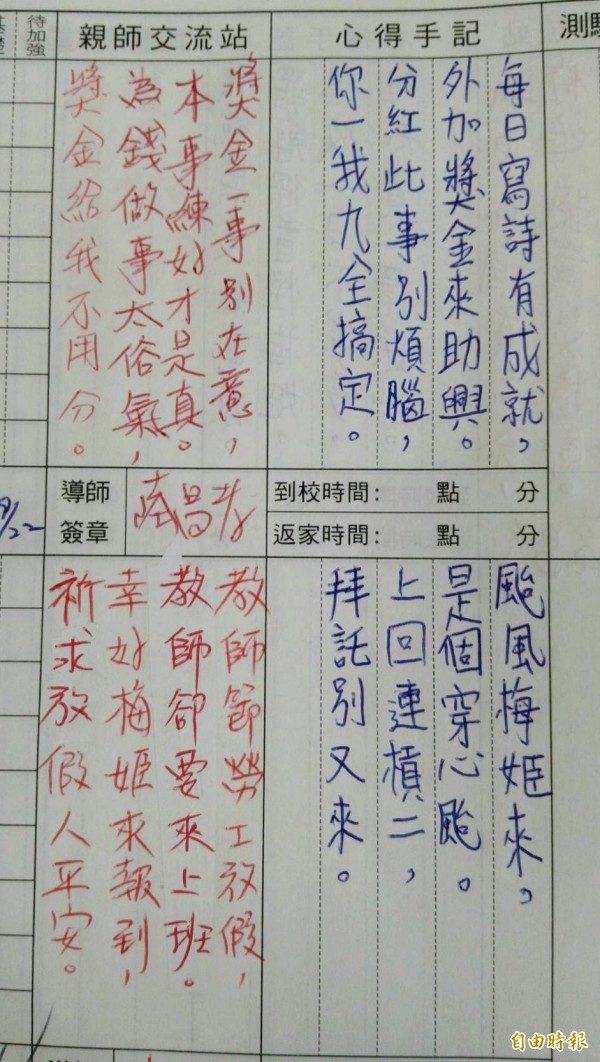 待加強
親師交流站
心得手記
每日寫詩有成就，
外加獎金來助興。
分紅此事別煩腦，
你一我九全搞定。
獎金一事別在意，
本事練好才是真。
為錢做事太俗氣，
獎金給我不用分。
導師
簽章
到校時間： 點 分
返家時間： 點 分
颱風梅姬來，
是個穿心颱。
上回連槓二，
拜託別又來。
教師節勞工放假，
教師卻要來上班。
幸好梅姬來報到，
祈求放假人平安。
自由時報